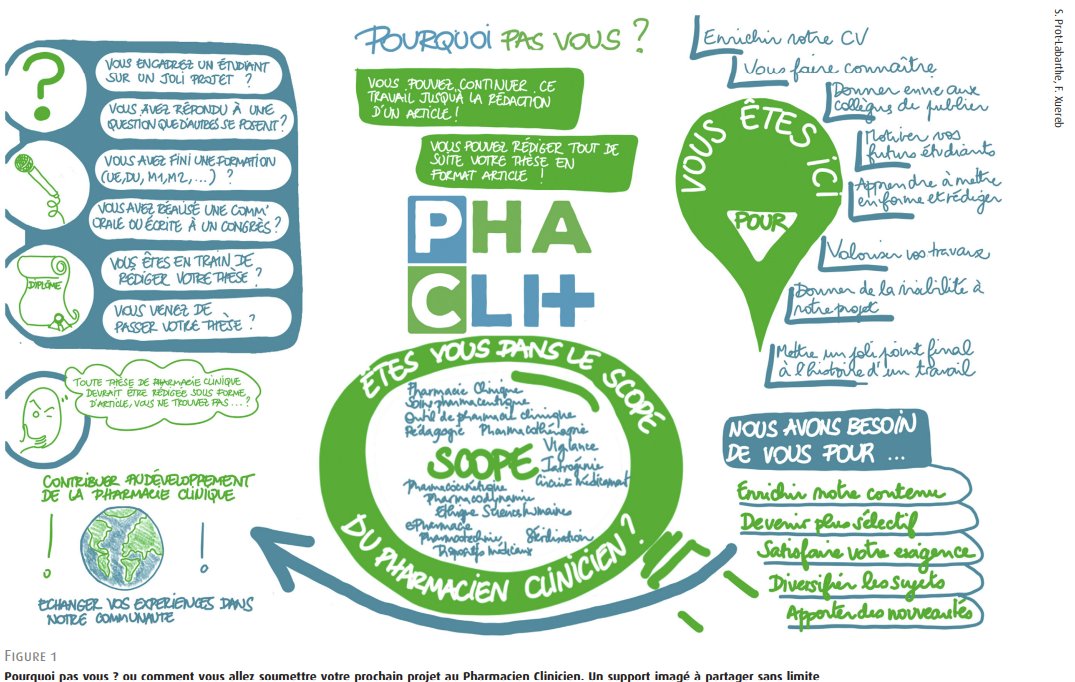 S. Prot-Labarthe, F. Xuereb
POURQUOI PAS VOUS ?
VOUS ENCADREZ UN ÉTUDIANT
SUR UN JOLI PROJET ?
VOUS AVEZ RÉPONDU À UNE
QUESTION QUE D'AUTRES SE POSENT ?
VOUS AVEZ FINI UNE FORMATION
(UE, DU, M1, M2, ...) ?
VOUS AVEZ RÉALISÉ UNE COMM'
ORALE OU ÉCRITE À UN CONGRÈS ?
DIPLÔME
VOUS ÊTES EN TRAIN DE
RÉDIGER VOTRE THÈSE ?
VOUS VENEZ DE
PASSER VOTRE THÈSE ?
TOUTE THÈSE DE PHARMACIE CLINIQUE
DEVRAIT ÊTRE RÉDIGÉE SOUS FORME
D'ARTICLE, VOUS NE TROUVEZ PAS.... ?
CONTRIBUER AU DÉVELOPPEMENT
DE LA PHARMACIE CLINIQUE
! !
ECHANGER VOS EXPERIENCES DANS
NOTRE COMMUNAUTE
VOUS POUVEZ CONTINUER CE
TRAVAIL JUSQU'À LA RÉDACTION
D'UN ARTICLE !
VOUS POUVEZ RÉDIGER TOUT DE
SUITE VOTRE THÈSE EN
FORMAT ARTICLE !
PHA
CLI+
ÊTES VOUS DANS LE SCOPE
Pharmacie Clinique
Soin pharmaceutique
Outil de pharmacie clinique
Pédagogie Pharmacothérapie
Vigilance
SCOPE
Iatrogénie
Circuit médicament
Pharmacocinétique
Pharmacodynamie
Ethique Sciences humaines
ePharmacie
Pharmacotechnie Stérilisation
Dispositifs médicaux
DU PHARMACIEN CLINICIEN ?
VOUS ÊTES ICI
POUR
Enrichir votre CV
Vous faire connaître
Donner envie aux
collègues de publier
Motiver vos
futurs étudiants
Apprendre à mettre
en forme et rédiger
Valoriser vos travaux
Donner de la visibilité à
votre projet
Mettre un joli point final
à l'histoire d'un travail
NOUS AVONS BESOIN
DE VOUS POUR ...
Enrichir notre contenu
Devenir plus sélectif
Satisfaire votre exigence
Diversifier les sujets
Apporter des nouveautés
FIGURE 1
Pourquoi pas vous ? ou comment vous allez soumettre votre prochain projet au Pharmacien Clinicien. Un support imagé à partager sans limite